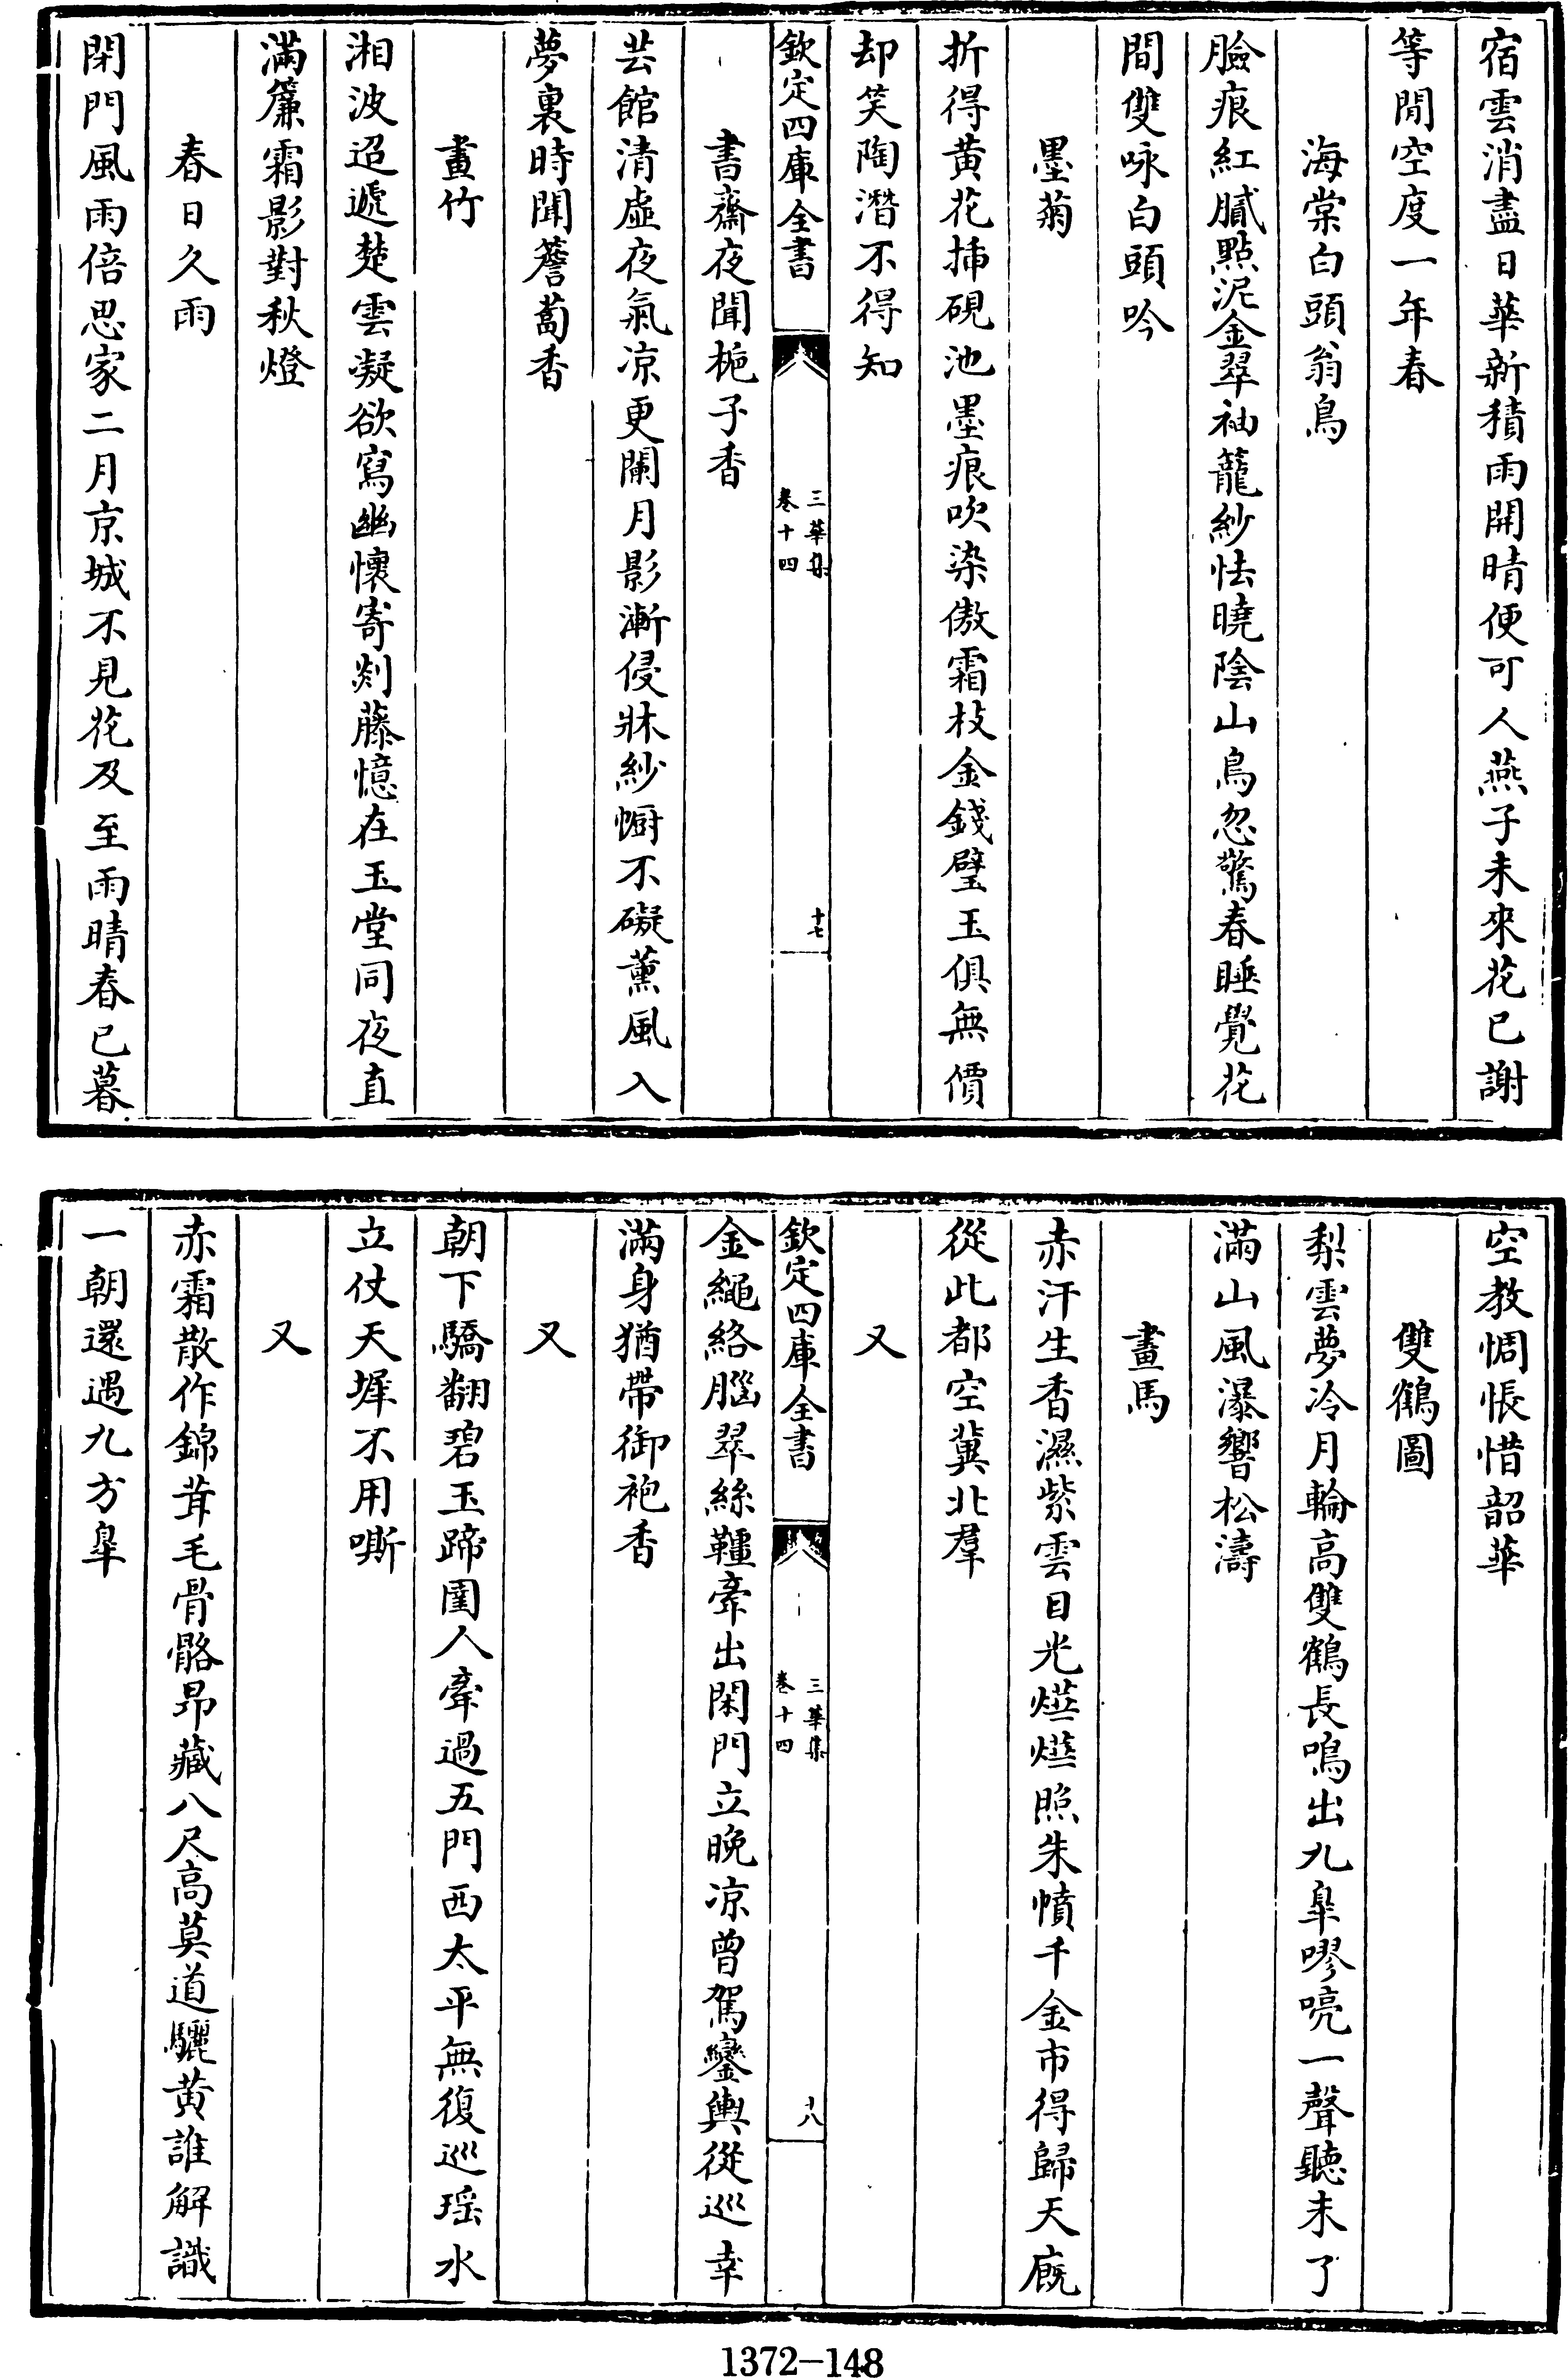 宿雲消盡日華新積雨開晴便可人燕子未來花已謝
等閒空度一年春
海棠白頭翁鳥
臉痕紅膩點泥金翠袖籠紗怯曉陰山鳥忽驚春睡覺花
間雙咏白頭吟
墨菊
折得黄花揷硯池墨痕吹染傲霜枝金錢璧玉俱無價
却笑陶潛不得知
欽定四庫全書
三華集
卷十四
十七
書齋夜聞梔子香
芸館清虛夜氣凉更闌月影漸侵牀紗幮不礙薰風入
夢裏時聞薝蔔香
畫竹
湘波迢遞楚雲凝欲寫幽懷寄剡藤憶在玉堂同夜直
滿簾霜影對秋燈
春日久雨
閉門風雨倍思家二月京城不見花及至雨晴春已暮
空教惆悵惜韶華
雙鶴圖
梨雲夢冷月輪高雙鶴長鳴出九臯嘐喨一聲聽未了
滿山風瀑響松濤
畫馬
赤汗生香濕紫雲目光爗爗照朱幩千金市得歸天廐
從此都空冀北羣
又
欽定四庫全書
三華集
卷十四
十八
金繩絡腦翠絲韁牽出閑門立晚凉曾駕鑾輿從巡幸
滿身猶帶御袍香
又
朝下驕翻碧玉蹄圉人牽過五門西太平無復巡瑶水
立仗天墀不用嘶
又
赤霜散作錦茸毛骨骼昂藏八尺高莫道驪黄誰解識
一朝還遇九方臯
1372-148